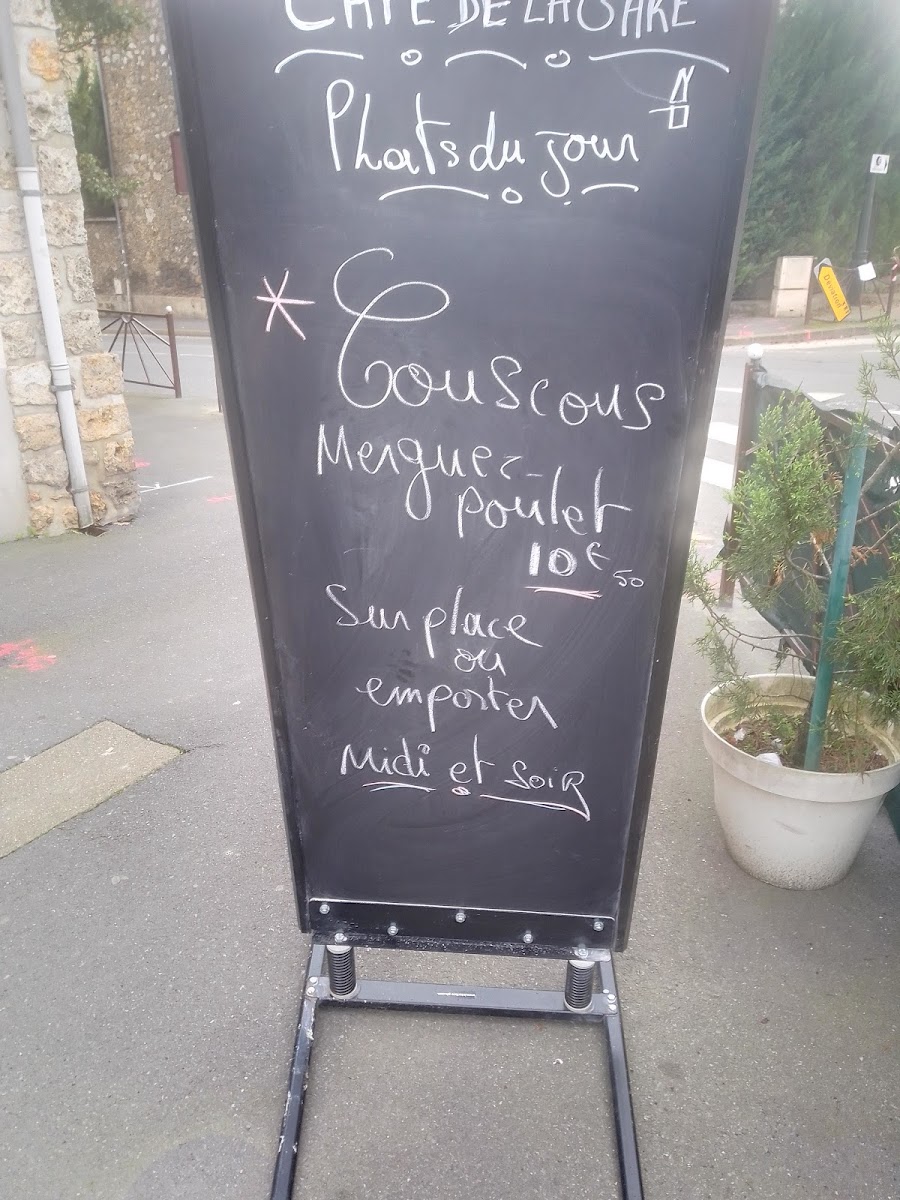 CAFE DE LA GARE
Plats du jour
* Couscous
Merguez-
poulet
10€50
Sur place
ou
emporter
Midi et soiR
Déviation